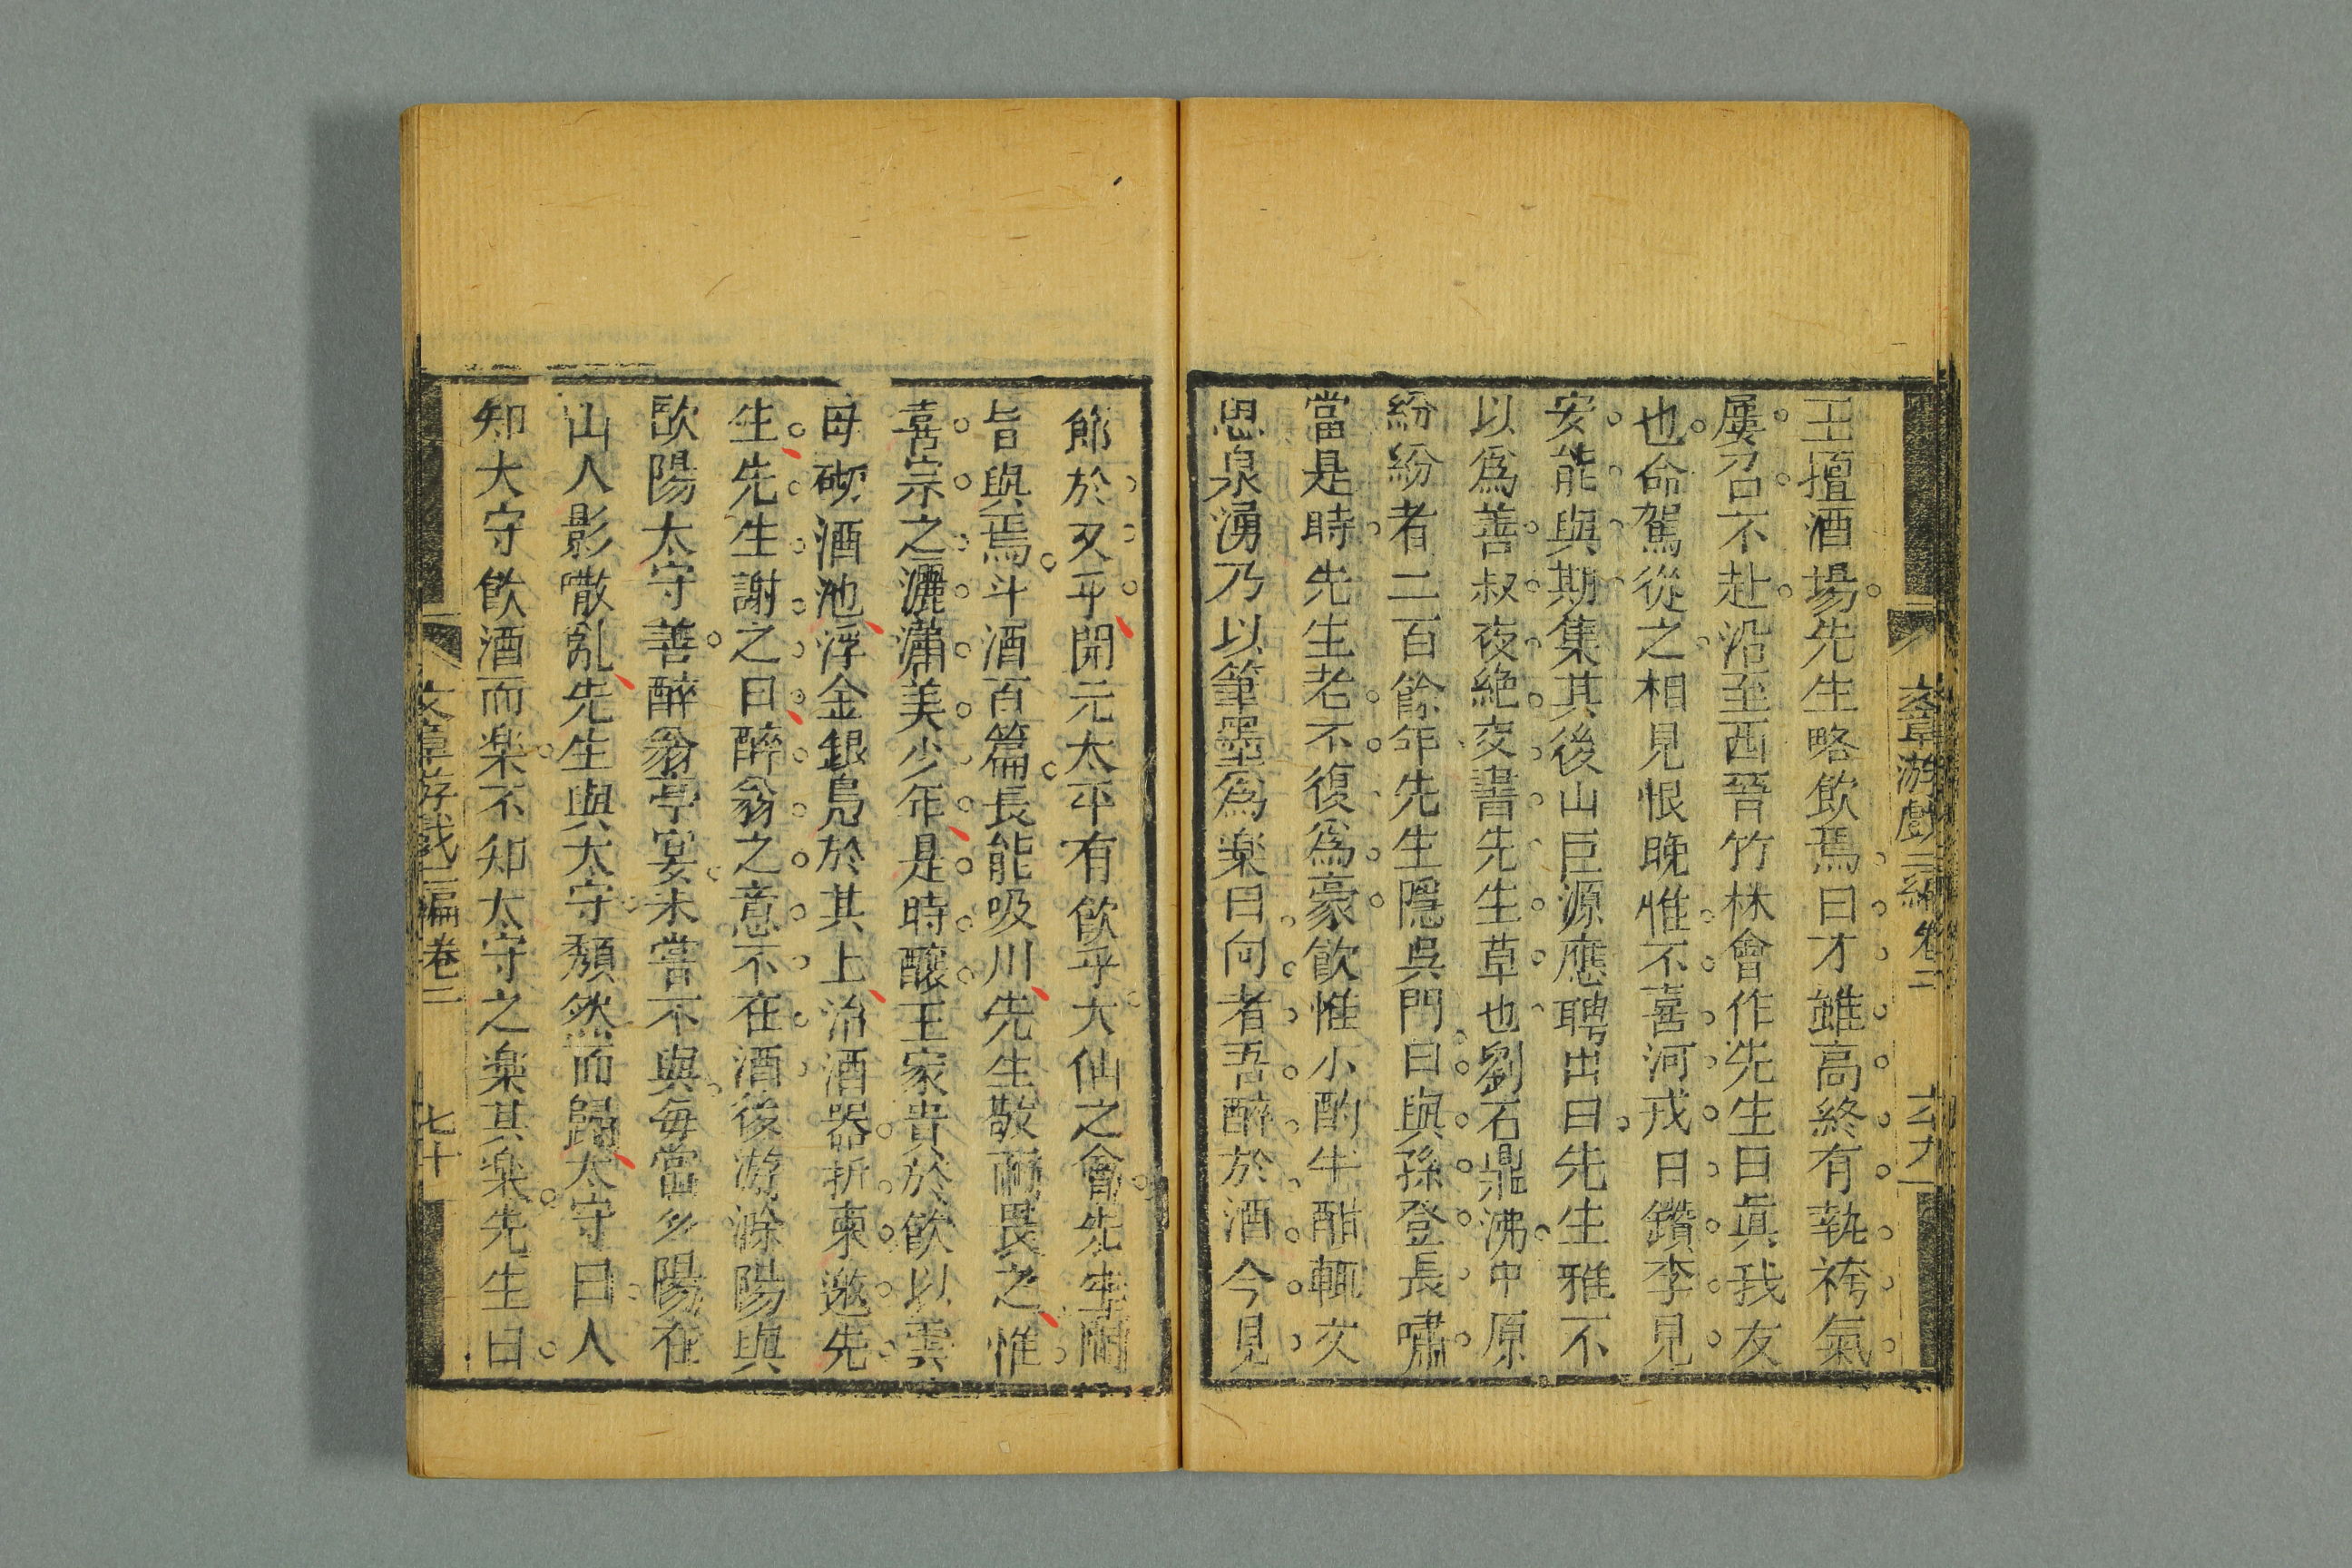 文章游戲二編卷二 六九
王擅酒場先生略飲焉曰才雖高終有執袴氣
屢召不赴沿至西晉竹林會作先生曰眞我友
也命駕從之相見恨晚惟不喜河戎曰鑽李見
安能與期集其後山巨源應聘出曰先生雅不
以爲善叔夜絶交書先生草也劉石鼎沸中原
紛紛者二百餘年先生隱吳門曰與孫登長嘯
當是時先生老不復爲豪飲惟小酌半酣輒文
思泉湧乃以筆墨爲楽曰向者吾醉於酒今見
節於歹乎開元太平有飲乎大仙之會先生聞
旨與焉斗酒百篇長能吸川先生敬而畏之惟
喜宗之灑瀟美少年是時釀王家貴於飲以雲
母砌酒池浮金銀鳧於其上治酒器折柬邀先
生先生謝之曰醉翁之意不在酒後游滁陽與
歐陽太守善醉翁亭宴未嘗不與每當夕陽在
山人影㪚亂先生與太守頽然而歸太守曰人
知太守飲酒而楽不知太守之楽其楽先生曰
文章游戲二編卷二 七十